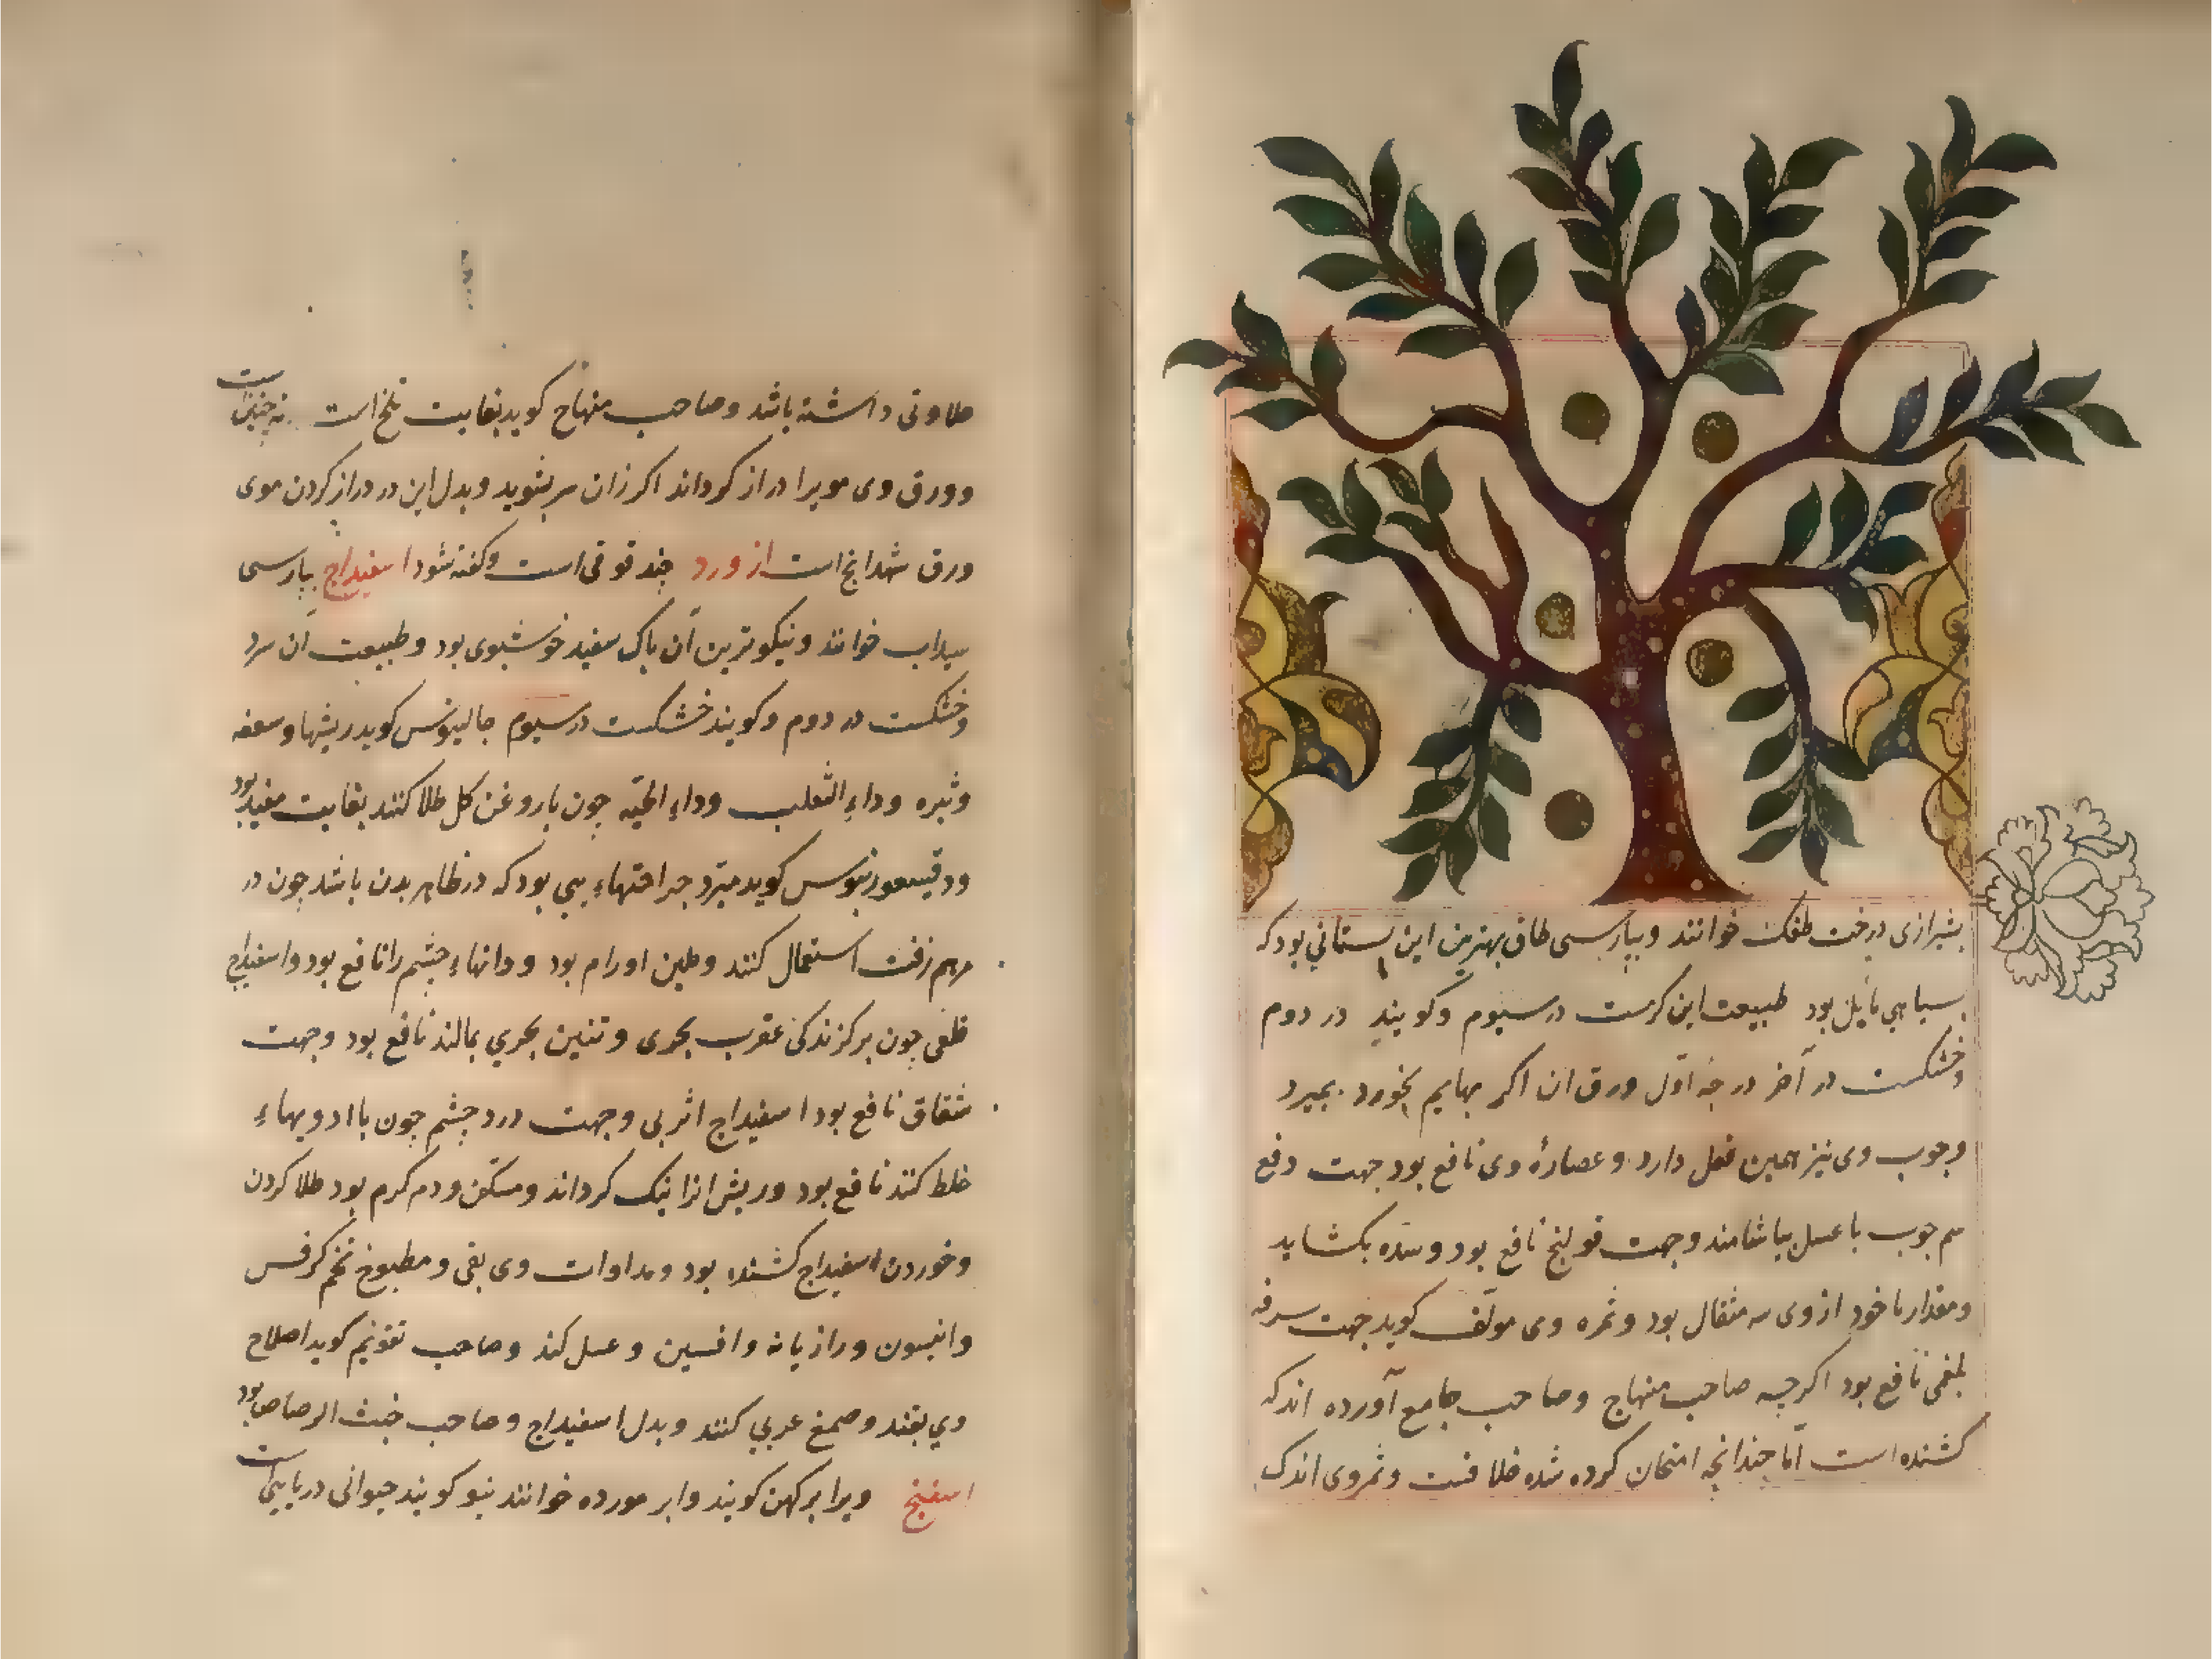 بشیرازی درخت طغک خوانند و بپارسی طاق بهترین این بستانی بود که
بسیاهی مایل بود طبیعت این گرمست در سیوم و کویند در دوم
و خشکست در آخر درجه اول ورق ان اکر بهایم بخورد بمیرد
و چوب وی نیز همین فعل دارد و عصارۀ وی نافع بود جهت دفع
سم چوب با عسل بیاشامند و جهت قولنج نافع بود و سده بکشاید
و مقدار ماخود از وی سه مثقال بود و ثمره وی مولف کوید جهت سرفه
بلغمی نافع بود اکرچه صاحب منهاج و صاحب جامع آورده اند که
کشنده است اما چندانچه امتحان کرده شده خلافست و ثمر وی اندک
حلاوتی داشته باشد و صاحب منهاج کوید بغایت تلخ است نه چنین است
و ورق وی مویرا دراز کرداند اکر زان سر بشوید و بدل این در دراز کردن موی
ورق شهدانج است ازورد حندقوقی است و کفته شود اسفیداج بپارسی
سپیداب خوانند و نیکوترین آن پاک سفید خوشبوی بود و طبیعت آن سرد
و خشکست در دوم و کویند خشکست در سیوم جالینوس کوید ریشها و سعفه
و ثبره و داء الثعلب و داء الحیه چون با روغن کل طلا کنند بغایت مفید بود
و دقیسعوریدوس کوید مبرد جراحتهاء بود که در ظاهر بدن باشد چون در
مرهم زفت استعمال کنند و ملین اورام بود و دانهاء چشم را نافع بود و اسفیداج
قلعی چون بر کزندکی عقرب بحری و تنین بحری بمالند نافع بود و جهت
شقاق نافع بود اسفیداج اثربی و جهت درد چشم چون با ادویهاء
خلط کنند نافع بود و ریش انرا نیک کرداند و مسکن ورم کرم بود طلا کردن
و خوردن اسفیداج کشنده بود و مداوات وی بقی و مطبوخ تخم کرفس
و انیسون و رازیانه و افسنین و عسل کند و صاحب تقویم کوید اصلاح
وی بقند و صمغ عربی کنند و بدل اسفیداج و صاحب خبث الرصاص بود
اسفنج ویرا ابر کهن کویند و ابر مورده خوانند نیو کویند حیوانی دریاییست